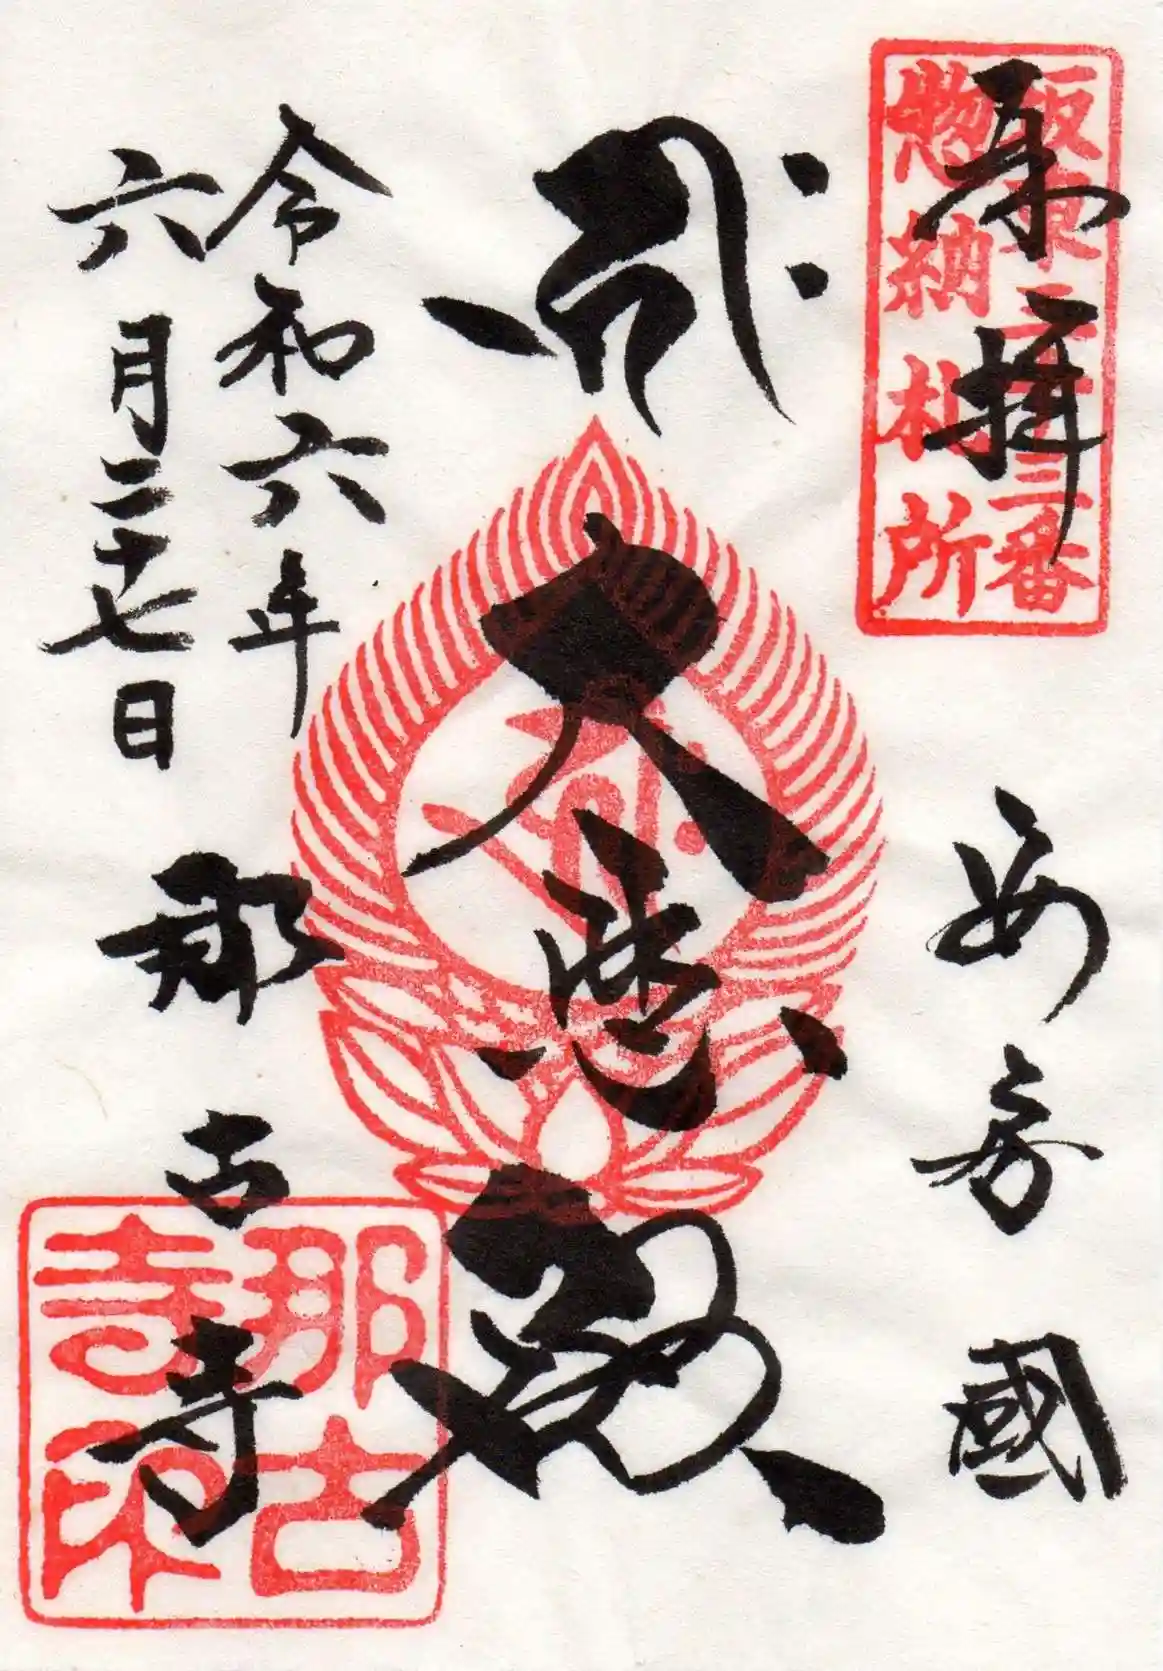 奉拝
坂東三十三番
惣納札所
安房國
大悲殿
令和六年
六月二十七日
那古寺
那古
寺印